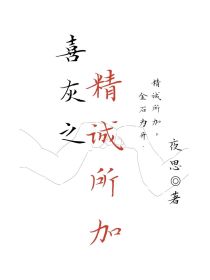 喜灰之
精诚所加
精诚所加，
金石为开．
夜思◎著